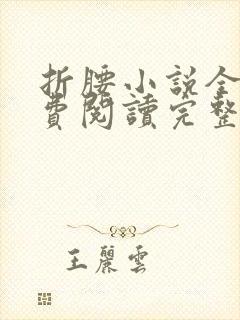 折腰小说全
費閱讀完整
王麗雲